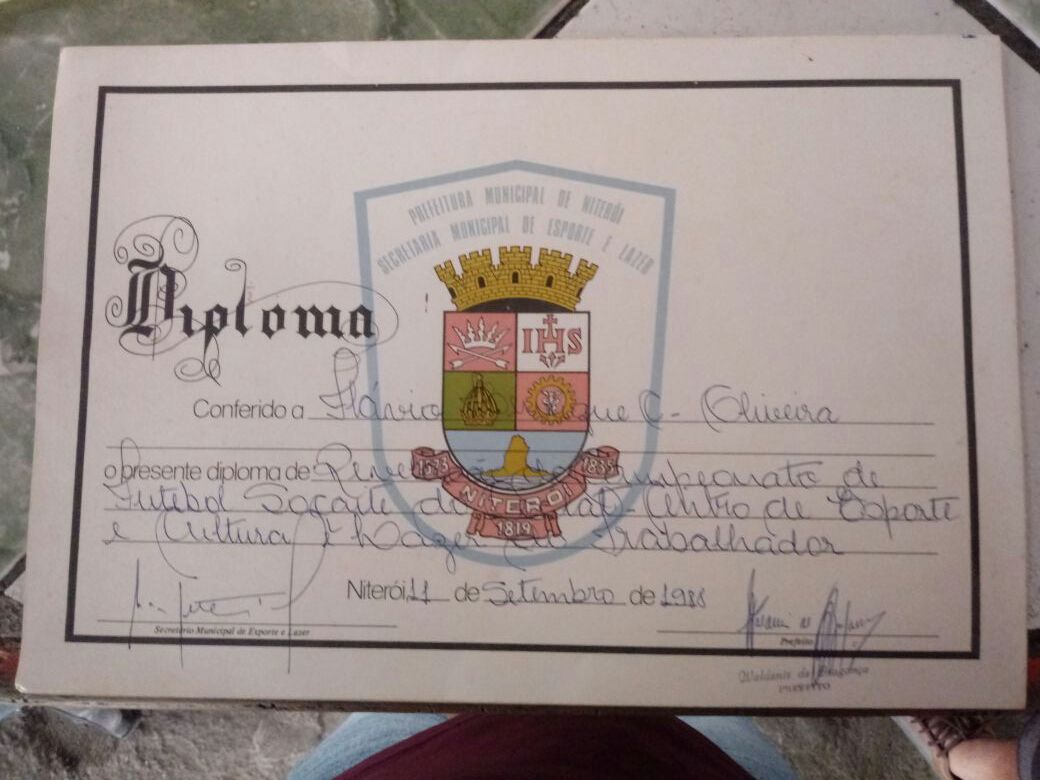 PREFEITURA MUNICIPAL DE NITERÓI
SECRETARIA MUNICIPAL DE ESPORTE E LAZER
Diploma
de
IHS
Conferido a Flávio que C. Oliveira
o presente diploma de Campeonato de
Futebol Soçaite de Centro de Esporte
e Cultura e Lazer do Trabalhador
1573 1835
NITERÓI
1819
Niterói, 11 de Setembro de 1988
Secretário Municipal de Esporte e Lazer
Prefeito
Waldenir de Bragança
PREFEITO